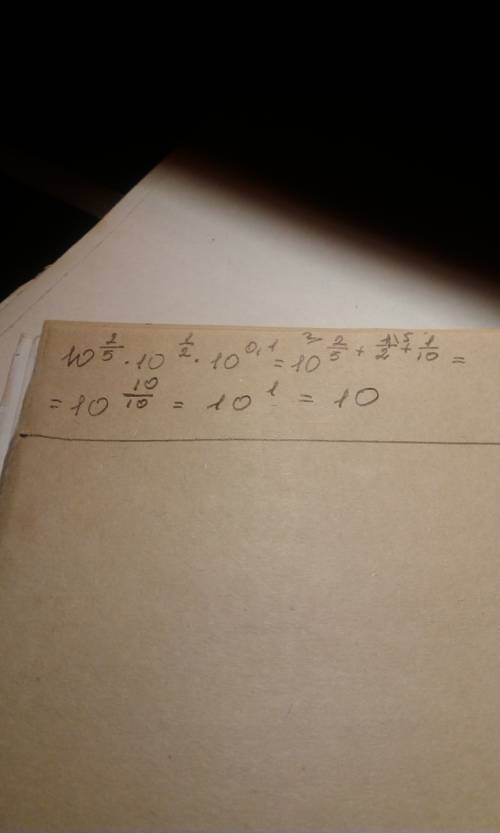 10^(2/5) · 10^(1/2) · 10^(0,1) = 10^(2/5 + 1/2 + 1/10) =
= 10^(10/10) = 10^1 = 10